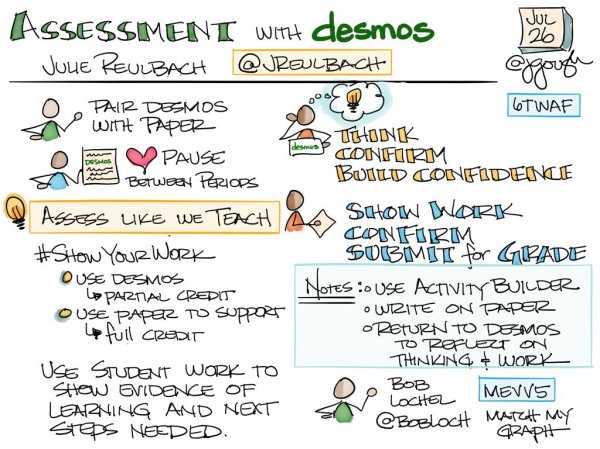 ASSESSMENT WITH desmos
JULIE REULBACH @JREULBACH
JUL
26
@jgough
6TWAF
PAIR DESMOS
WITH PAPER
DESMOS
PAUSE
BETWEEN PERIODS
ASSESS LIKE WE TEACH
#SHOWYOURWORK
USE DESMOS
PARTIAL CREDIT
USE PAPER TO SUPPORT
full CREDIT
USE STUDENT WORK TO
SHOW EVIDENCE OF
LEARNING AND NEXT
STEPS NEEDED.
desmos
THINK
CONFIRM
BUILD CONFIDENCE
SHOW WORK
CONFIRM
SUBMIT for GRADE
NOTES: USE ACTIVITY BUILDER
WRITE ON PAPER
RETURN TO DESMOS
TO REFLECT ON
THINKING + WORK
BOB
LOCHEL
@BOBLOCH
MEVV5
MATCH MY
GRAPH